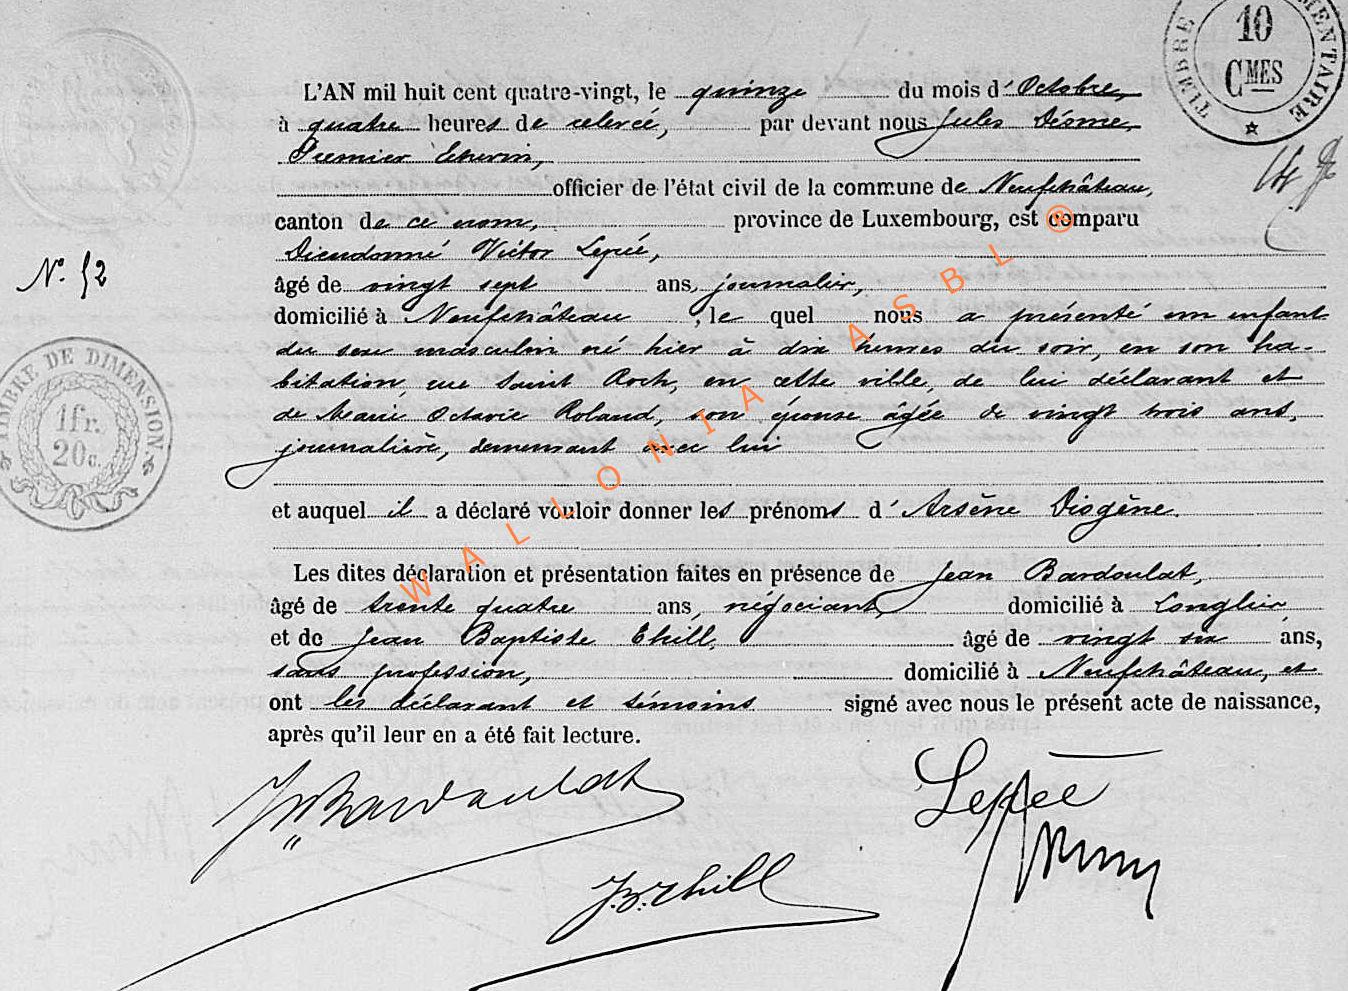 TIMBRE
MENTAIRE
10
CMES
L'AN mil huit cent quatre-vingt, le quinze du mois d'Octobre,
à quatre heures de relevée, par devant nous Jules Désme,
Premier Echevin,
officier de l'état civil de la commune de Neufchâteau,
canton de ce nom, province de Luxembourg, est comparu
Dieudonné Victor Lepée,
N° 52
âgé de vingt sept ans, journalier,
domicilié à Neufchâteau, le quel nous a présenté un enfant
du sexe masculin né hier à dix heures du soir, en son ha-
bitation, rue Saint Roch, en cette ville, de lui déclarant et
de Marie Octavie Roland, son épouse âgée de vingt trois ans,
journalière, demeurant avec lui
TIMBRE DE DIMENSION
1fr.
20c.
et auquel il a déclaré vouloir donner les prénoms d'Arsène Diogène.
Les dites déclaration et présentation faites en présence de Jean Bardoulat,
âgé de trente quatre ans, négociant, domicilié à Longlier
et de Jean Baptiste Thill, âgé de vingt six ans,
sans profession, domicilié à Neufchâteau, et
ont les déclarant et témoins signé avec nous le présent acte de naissance,
après qu'il leur en a été fait lecture.
Jn Bardoulat
Lepée
J.B. Thill
WALLONIA ASBL ®